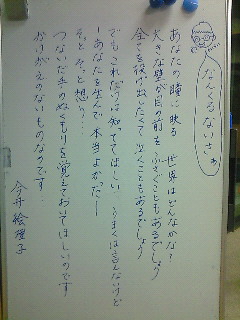 なんくるないさぁ
あなたの瞳に映る 世界はどんなかな?
大きな壁が目の前を ふさぐこともあるでしょう
全てを投げ出したくて 泣くこともあるでしょう
でもこれだけは知っててほしい うまくは言えないけど
ーあなたを生んで本当よかったー
そっと そっと想う…
つないだ手のぬくもりを覚えておいてほしいのです
かけがえのないものなのです…
今井絵理子